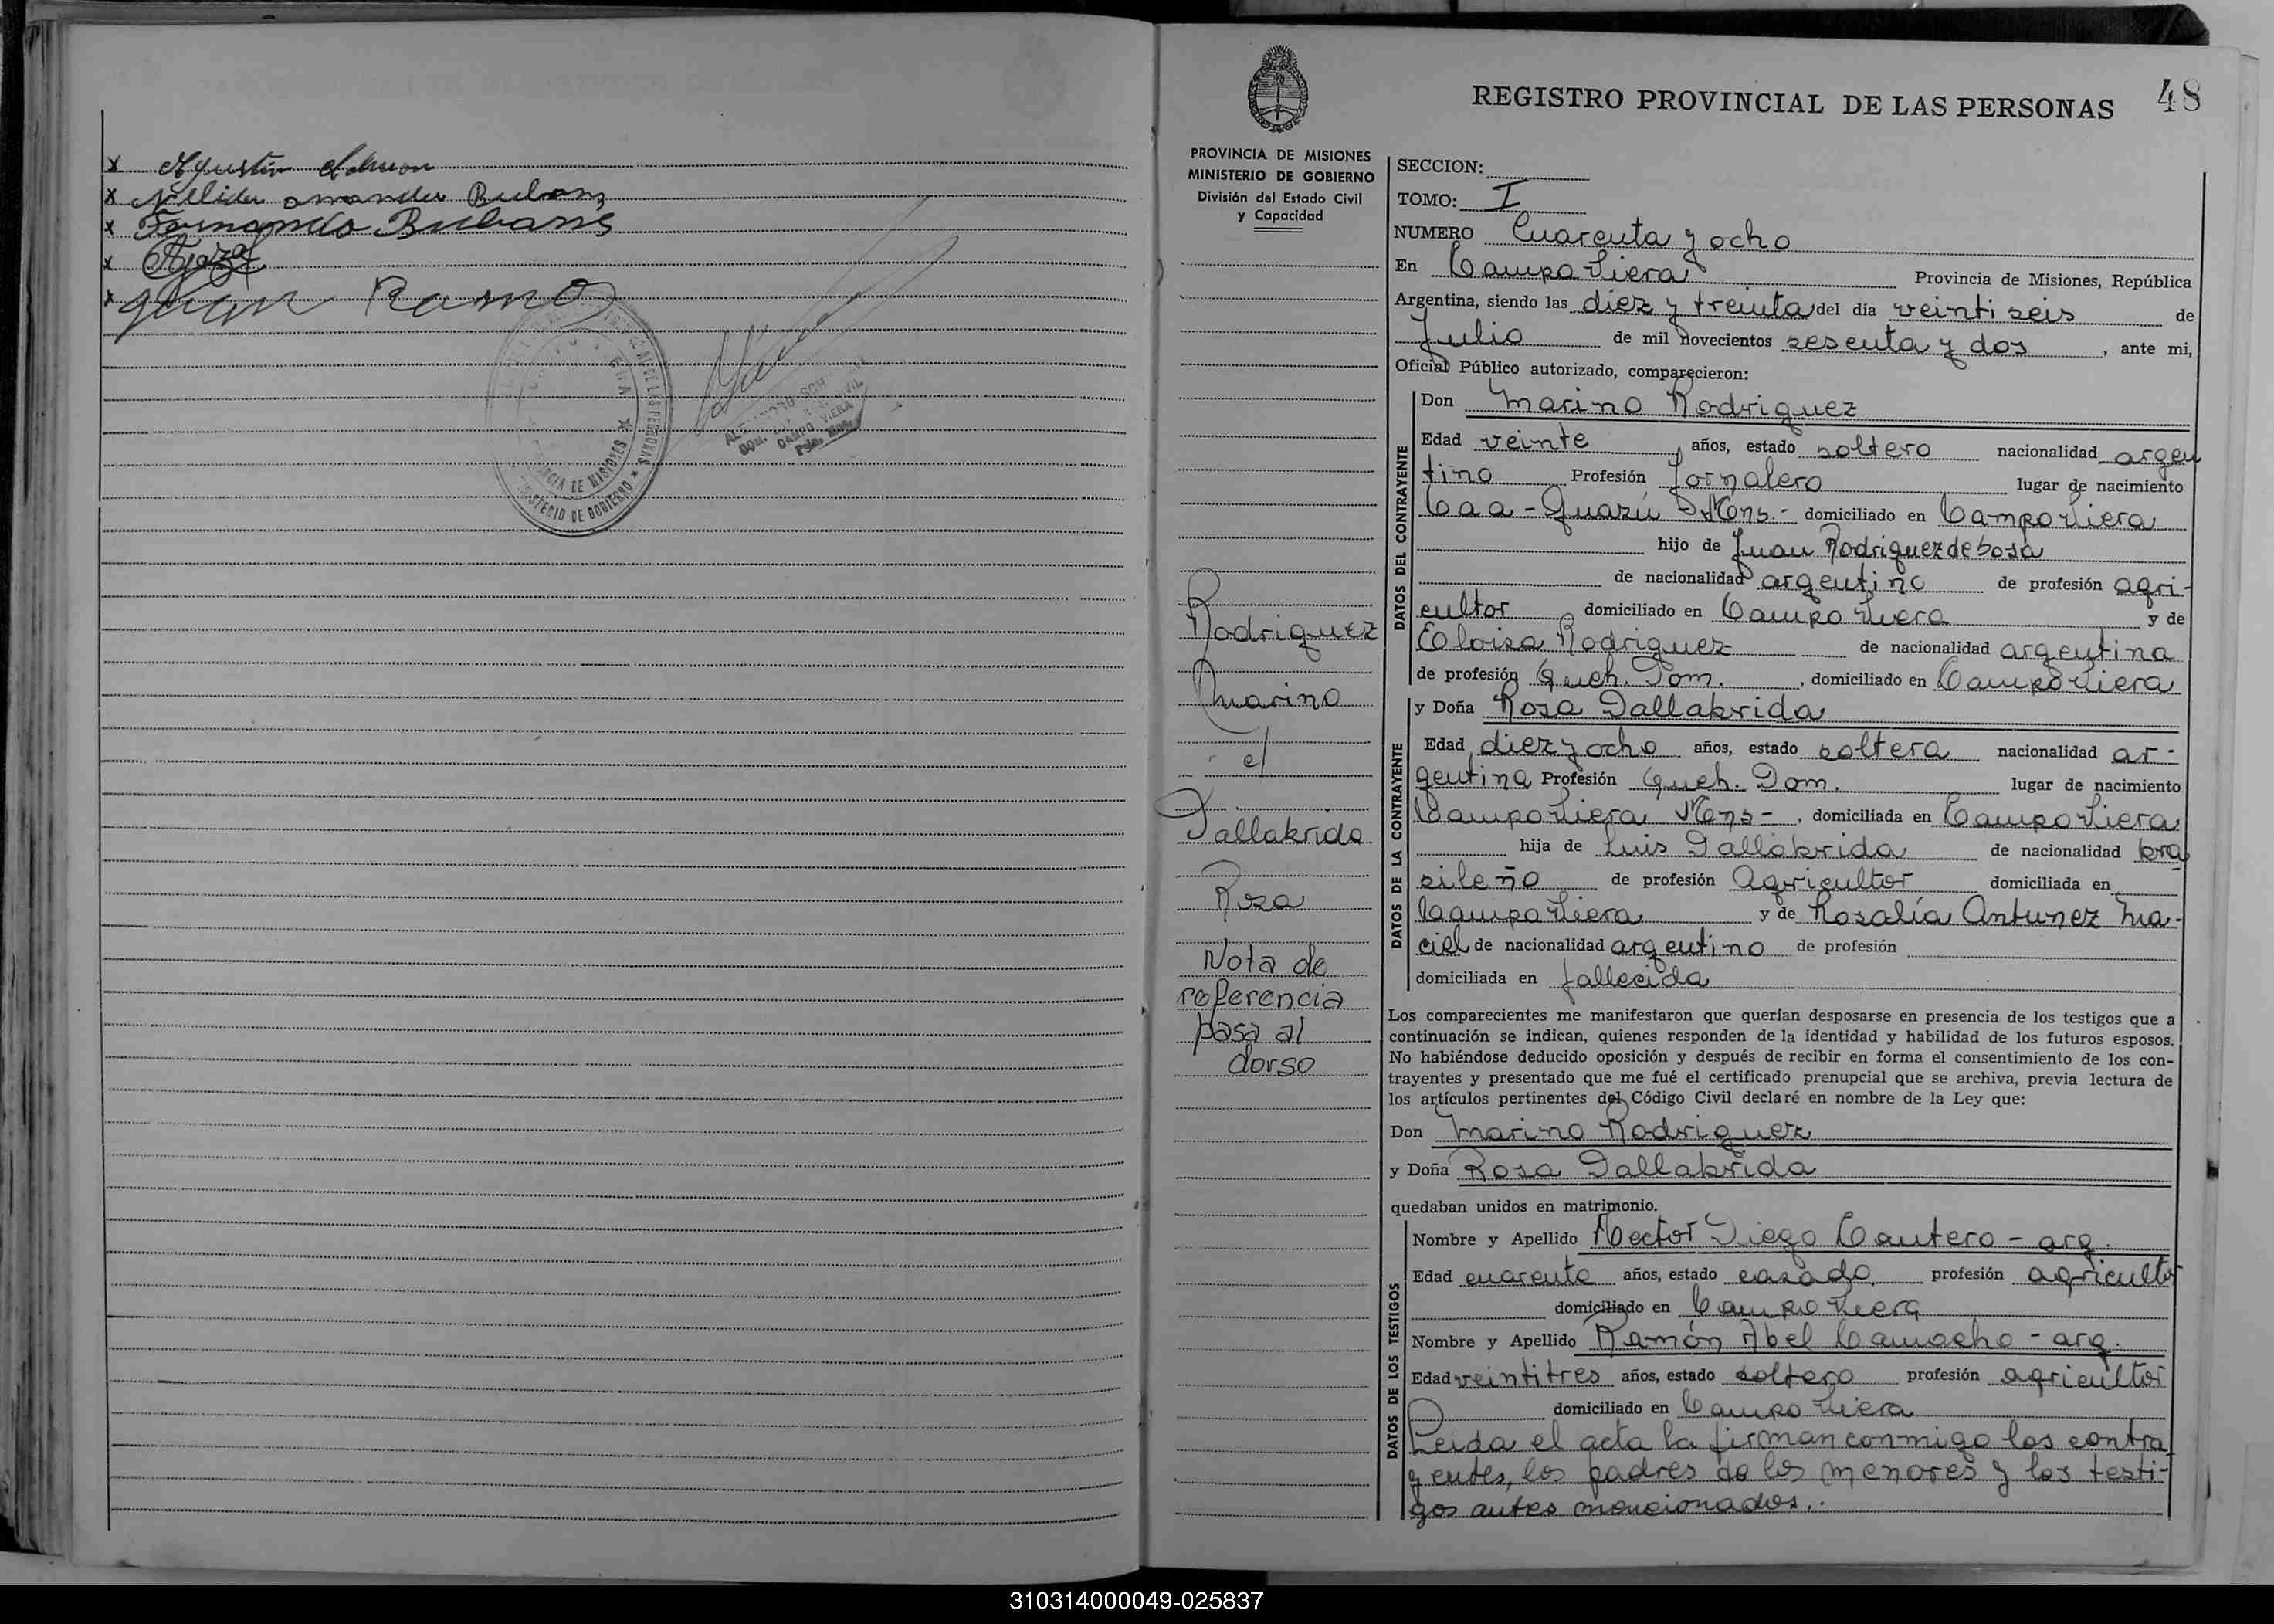 x Agustin
x Nellida amanda Bubans
x Fernando Bubans
x
x Juan Ramo
MINISTERIO DE GOBIERNO
PROVINCIA DE MISIONES
DE LAS PERSONAS
CAMPO VIERA
REGISTRO PROVINCIAL DE LAS PERSONAS 48
PROVINCIA DE MISIONES
MINISTERIO DE GOBIERNO
División del Estado Civil
y Capacidad
Rodriguez
Marino
c/
Dallabrida
Rosa
Nota de
referencia
pasa al
dorso
SECCION:
TOMO: I
NUMERO Cuarenta y ocho
En Campo Viera Provincia de Misiones, República
Argentina, siendo las diez y treinta del día veinti seis de
Julio de mil novecientos sesenta y dos, ante mi,
Oficial Público autorizado, comparecieron:
DATOS DEL CONTRAYENTE
Don Marino Rodriguez
Edad veinte, años, estado soltero nacionalidad argen
tino Profesión Jornalero lugar de nacimiento
Caa-Guazú Mnes.- domiciliado en Campo Viera
hijo de Juan Rodriguez de bosa
de nacionalidad argentino de profesión agri-
cultor domiciliado en Campo Viera y de
Eloisa Rodriguez de nacionalidad argentina
de profesión Queh. Dom., domiciliado en Campo Viera
DATOS DE LA CONTRAYENTE
y Doña Rosa Dallabrida
Edad diez y ocho años, estado soltera nacionalidad ar-
gentina Profesión Queh. Dom. lugar de nacimiento
Campo Viera Mnes-, domiciliada en Campo Viera
hija de Luis Dallabrida de nacionalidad bra
sileño de profesión Agricultor domiciliada en
Campo Viera y de Rosalía Antunez Ma-
ciel de nacionalidad argentino de profesión
domiciliada en fallecida
Los comparecientes me manifestaron que querían desposarse en presencia de los testigos que a
continuación se indican, quienes responden de la identidad y habilidad de los futuros esposos.
No habiéndose deducido oposición y después de recibir en forma el consentimiento de los con-
trayentes y presentado que me fué el certificado prenupcial que se archiva, previa lectura de
los artículos pertinentes del Código Civil declaré en nombre de la Ley que:
Don Marino Rodriguez
y Doña Rosa Dallabrida
quedaban unidos en matrimonio.
DATOS DE LOS TESTIGOS
Nombre y Apellido Hector Diego Cantero - arg.
Edad cuarenta años, estado casado. profesión agricultor
domiciliado en Campo Viera
Nombre y Apellido Ramón Abel Camacho - arg.
Edad veintitres años, estado soltero profesión agricultor
domiciliado en Campo Viera
Leida el acta la firman conmigo los contra
yentes, los padres de los menores y los testi-
gos antes mencionados..
310314000049-025837